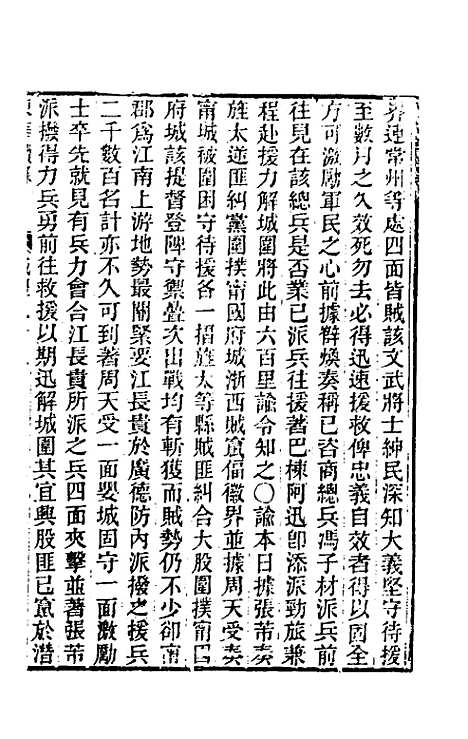 界連常州等處四面皆賊該文武將士紳民深知大義堅守待援
至數月之久效死勿去必得迅速援救俾忠義自效者得以固全
方可激勵軍民之心前據薛煥奏稱已咨商總兵馮子材派兵前
往見在該總兵是否業已派兵往援著巴棟阿迅卽添派勁旅兼
程赴援力解城圍將此由六百里諭令知之〇諭本日據張芾奏
旌太逆匪糾黨圍撲甯國府城浙西賊竄偪徽界並據周天受奏
甯城被圍固守待援各一摺旌太等縣賊匪糾合大股圍撲甯
府城該提督登陴守禦疊次出戰均有斬獲而賊勢仍不少卻甯
郡爲江南上游地勢最關緊要江長貴於廣德防內派撥之援兵
二千數百名計亦不久可到著周天受一面嬰城固守一面激勵
士卒先就見有兵力會合江長貴所派之兵四面夾擊並著張芾
派撥得力兵勇前往救援以期迅解城圍其宜興股匪已竄於潛